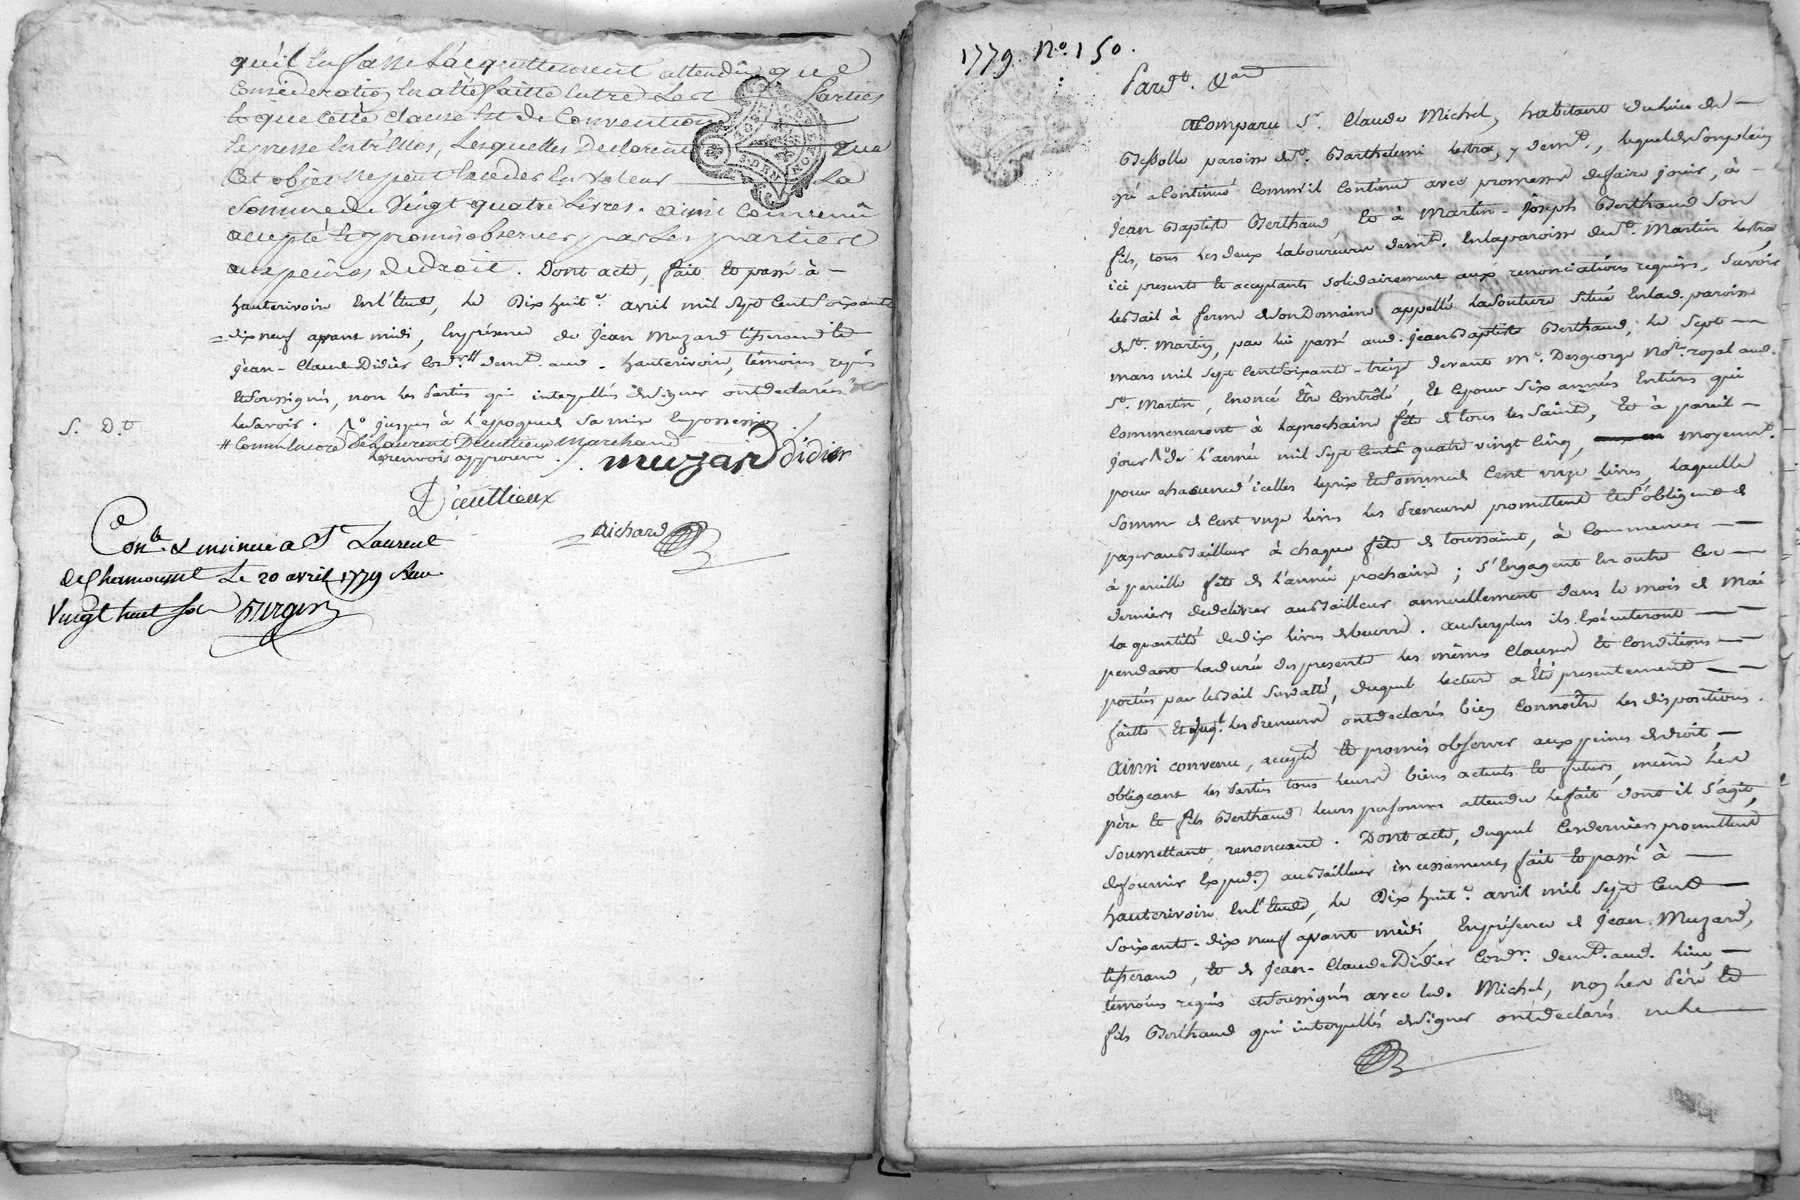 qu'il en fasse l'acquittement attendu que
Consideration en a été faitte entre Les Parties
et que cette clause est de Convention
Expresse entr'elles, Lesquelles Declarent que
Cet objet ne peut Exceder En valeur La
Somme de Vingt quatre Livres. ainsi Convenu
accepté et promis observer par Les parties
aux peines de droit. Dont acte, fait et passé à
hauterivoire En l'Etude, Le Dix huite. avril mil Sept Cent Soixante
dix neuf avant midi, En présence de Jean Muzard tisserand et
Jean-Claude Didier Cordr. demt. aud. hauterivoire, témoins requis
et Soussignés, non les Parties qui interpellés de Signer ont declarés ne
Le Savoir. # jusques à l'époque de Sa mise En possession
S. Dt.
# Comm' encore Sr. Laurent Dœuttieux Marchand
Le renvois approuvé.
Muzard Didier
Dœuttieux
Richard
Conlé. & insinué a St. Laurent
de Chamousset Le 20 avril 1779 Reçu
Vingt huit sols
1779 No. 150.
Pardt. &
a Comparu Sr. Claude Michel, habitant du lieu de
paroisse de St. Barthelemi Lestra, y demt., lequel de Son plein
gré a Continué Comm'il Continue avec promesse de faire jouir, à
Jean Baptiste Berthaud, et à Martin-Joseph Berthaud Son
fils, tous les deux Laboureurs demt. En la paroisse de St. Martin Lestra,
ici presents et acceptants Solidairement aux renonciations requises, Savoir
le Bail à ferme de Son Domaine appellé Situé En lad. paroisse
de St. Martin, par lui passé aud. Jean Baptiste Berthaud, le Sept
mars mil Sept Cent Soixante-treize devant Me. Desgeorge Nore. royal aud.
St. Martin, Enoncé Être Contrôlé, Et Ce pour Six années Entières qui
Commenceront à La prochaine fête de tous les Saints, et à pareil
jour de l'année mil Sept Cents quatre vingt Cinq, moyennt.
pour chacune d'icelles le prix et Somme de Cent onze Livres, Laquelle
Somme de Cent onze Livres les Preneurs promettent et S'obligent de
payer au Bailleur à chaque fête de toussaint, à Commencer
à pareille fête de l'année prochaine; S'Engagent En outre Ces
derniers de délivrer au Bailleur annuellement dans le mois de Mai
La quantité de dix Livres de beurre. Au Surplus ils Exécuteront
pendant La durée des presentes les mêmes Clauses et Conditions
portés par le Bail Susdatté, duquel lecture a Eté presentement
faitte Et les Preneurs ont declarés bien Connoître les dispositions.
Ainsi convenu, accepté et promis observer aux peines de droit,
obligeant les Parties tous leurs biens actuels et futurs, même les
père et fils Berthaud leurs personnes attendu le fait dont il S'agit,
Soumettant, renonceant. Dont acte, duquel Ces derniers promettent
de fournir Expedon. au Bailleur incessament, fait et passé à
hauterivoire En l'Etude, Le Dix huite. avril mil Sept Cent
Soixante-dix neuf avant midi En présence de Jean Muzard,
tisserand, et de Jean-Claude Didier Cordr. demt. aud. lieu,
témoins requis et Soussignés avec led. Michel, non les Père et
fils Berthaud qui interpellés de Signer ont declarés ne Le